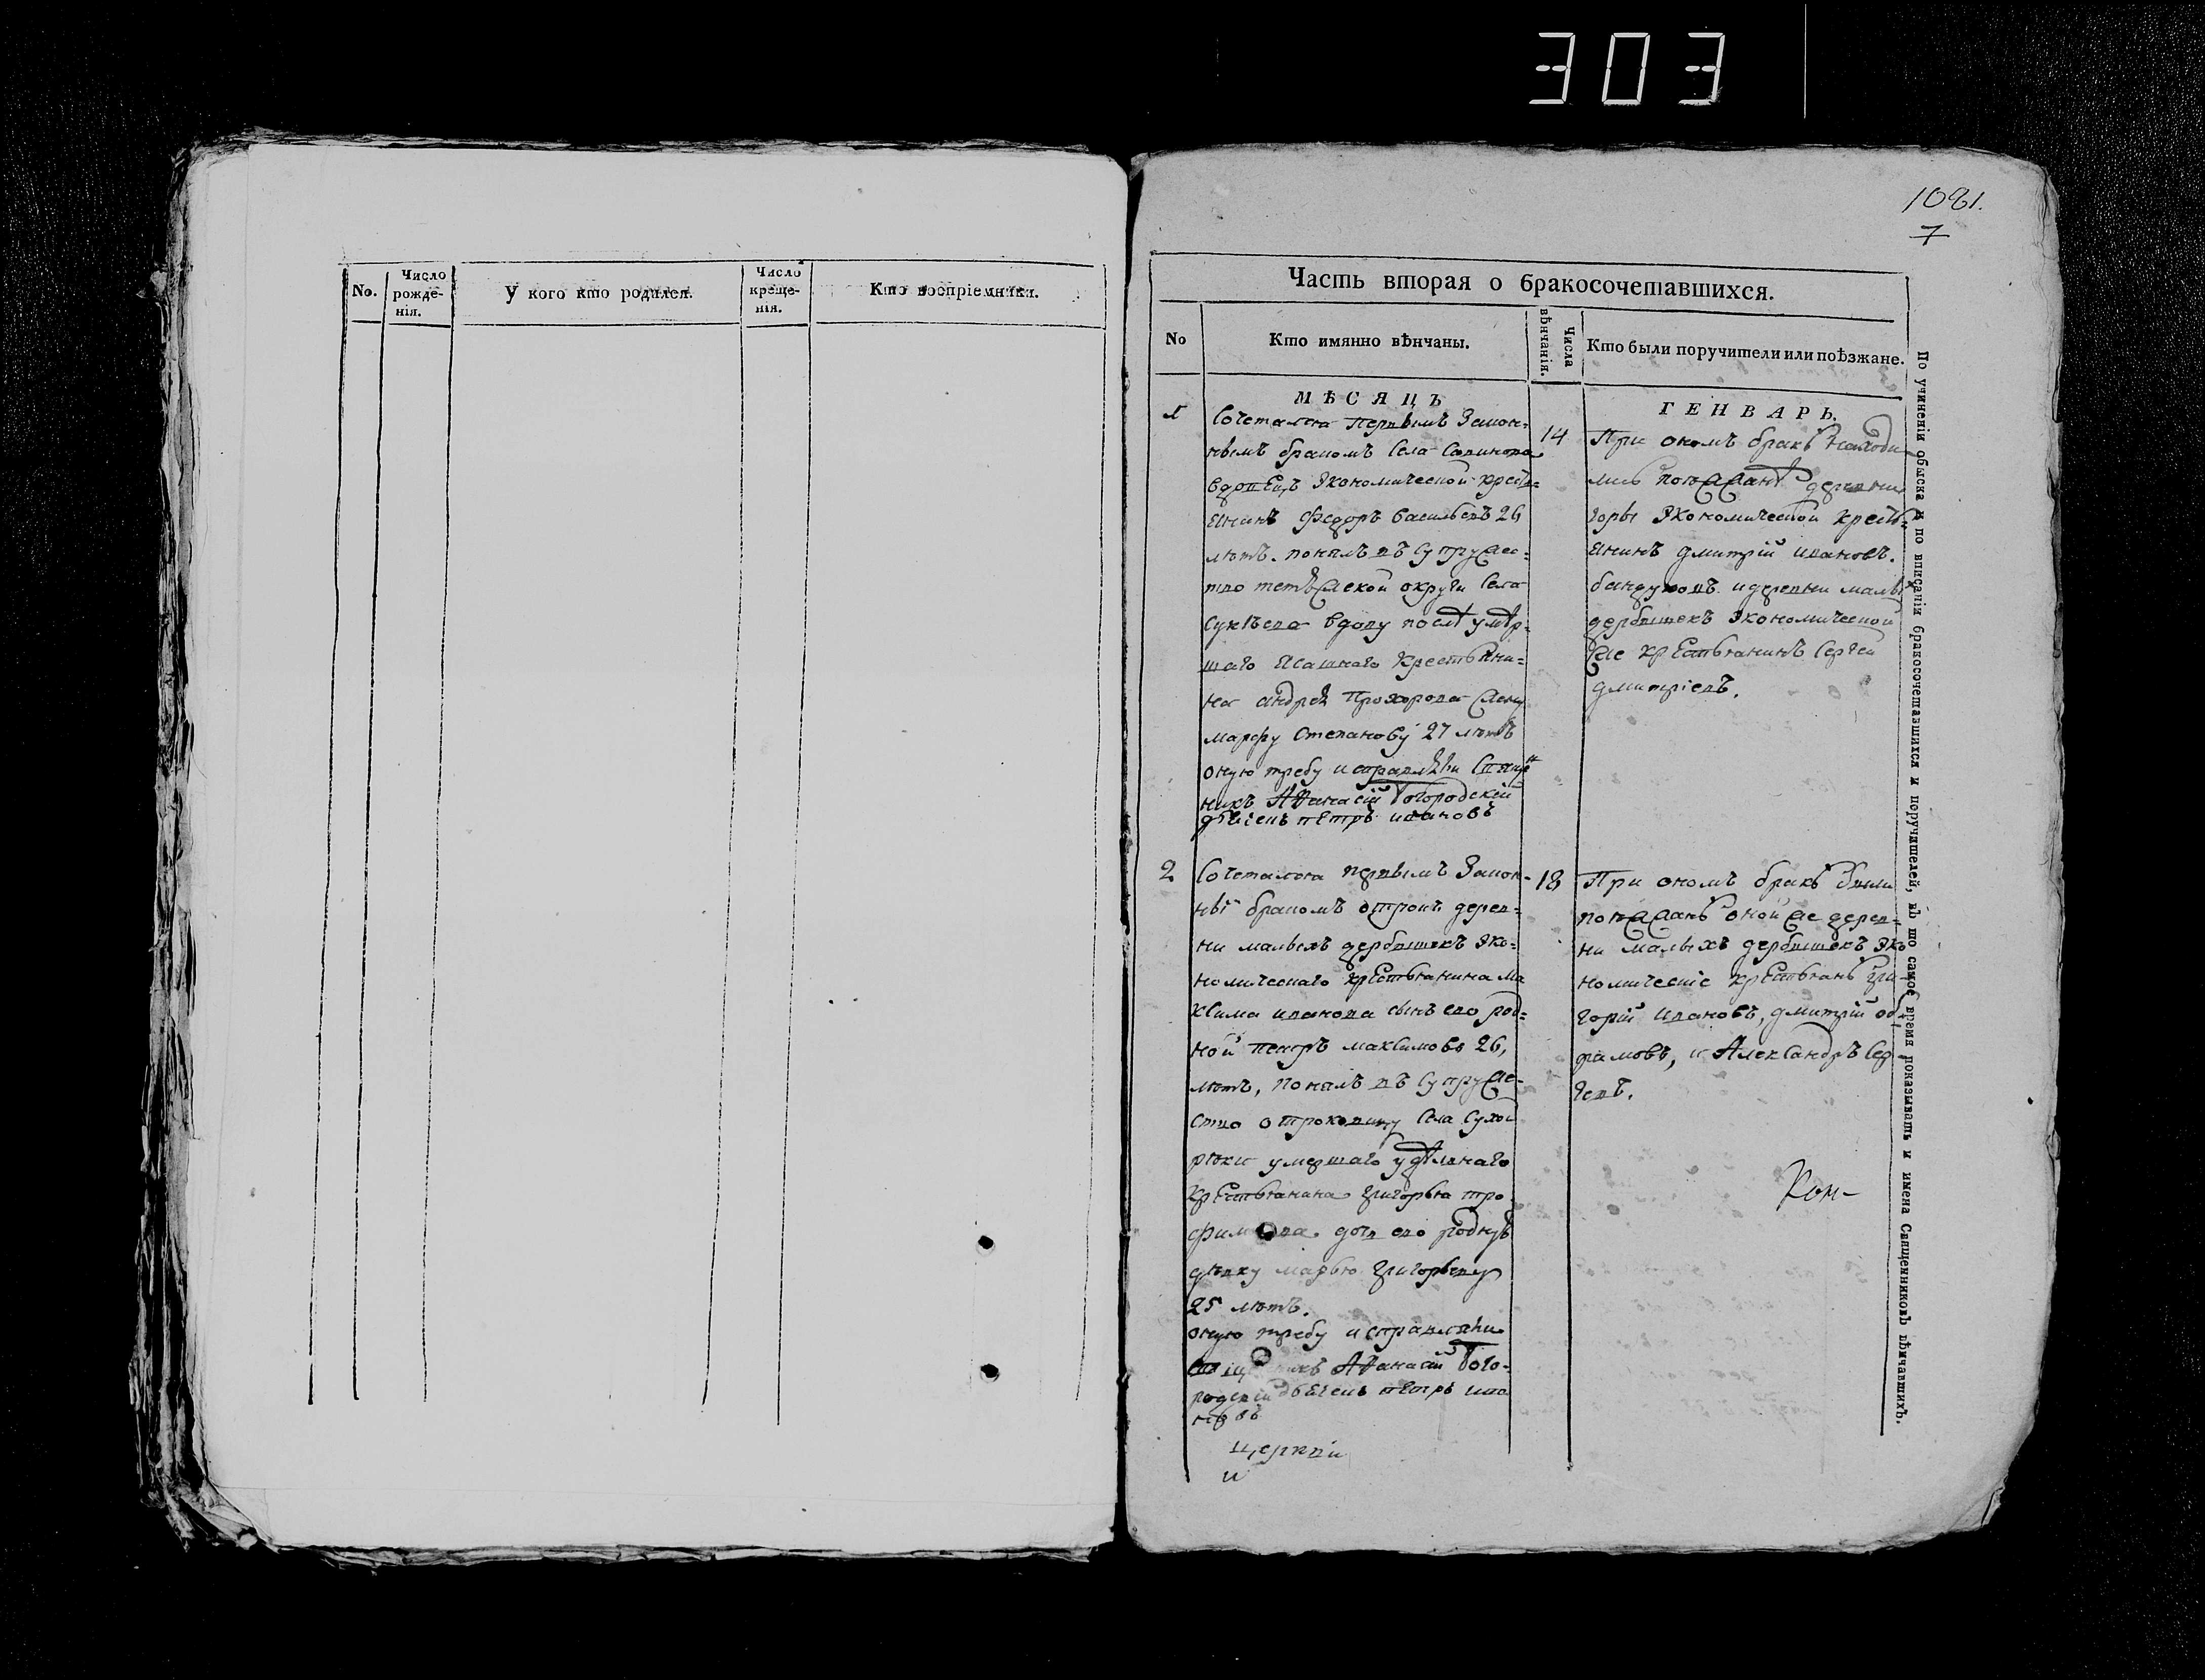 303
No.
Число рожде-
нія.
У кого кто родился.
Число креще-
нія.
Кто воспріемники.
1081.
7
Часть вторая о бракосочетавшихся.
No
Кто имянно вѣнчаны.
Числа вѣнчанія.
Кто были поручители или поѣзжане.
МѢСЯЦЪ
ГЕНВАРЬ.
1
Сочетался первымъ Закон-
нымъ бракомъ Села
вдовецъ Экономической крестъ-
янинъ Федоръ Васильевъ 26
лѣтъ. понялъ въ Супружес-
тво округи Села
вдову послѣ умѣр-
шаго Ясашнаго Крестьяни-
на андрея Прохорова жену
марфу Степанову 27 лѣтъ
оную требу исправляли Свящѣн
никъ Аѳанасій Богородскій
дьячекъ пѣтръ ивановъ
14
При ономъ бракѣ находи
лись поѣзжанѣ деревни
горы Экономической крестъ-
янинъ дмитрій ивановъ.
и деревни малыхъ
дербышекъ Экономической
же крестьянинъ Сергей
дмитріевъ.
2
Сочетался первымъ Закон-
ны бракомъ отрокъ дерев-
ни малыхъ дербышекъ Эко-
номическаго крестьянина Ма
ксима иванова сынъ ево род-
ной петръ максимовъ 26,
лѣтъ, понялъ въ Супруже-
ство отроковицу Села Сухой
рѣки умершаго удѣльнаго
крестьянина григорья тро
фимова дочь ево родную
дѣвку марью григорьеву
25 лѣтъ.
оную требу исправляли
Аѳанасій Бого-
родскій дьячекъ пѣтръ ива
новъ
18
При ономъ бракѣ были
поѣзжанѣ оной же дерев-
ни малыхъ дербышекъ Эко
номическіе крестьянѣ гри-
горій ивановъ, дмитрій
и Александръ Сер
геевъ.
церкви
и
По учиненіи обыска и по вписаніи бракосочетавшихся и поручителей, въ то самое время показывать и имена Священниковъ вѣнчавшихъ.